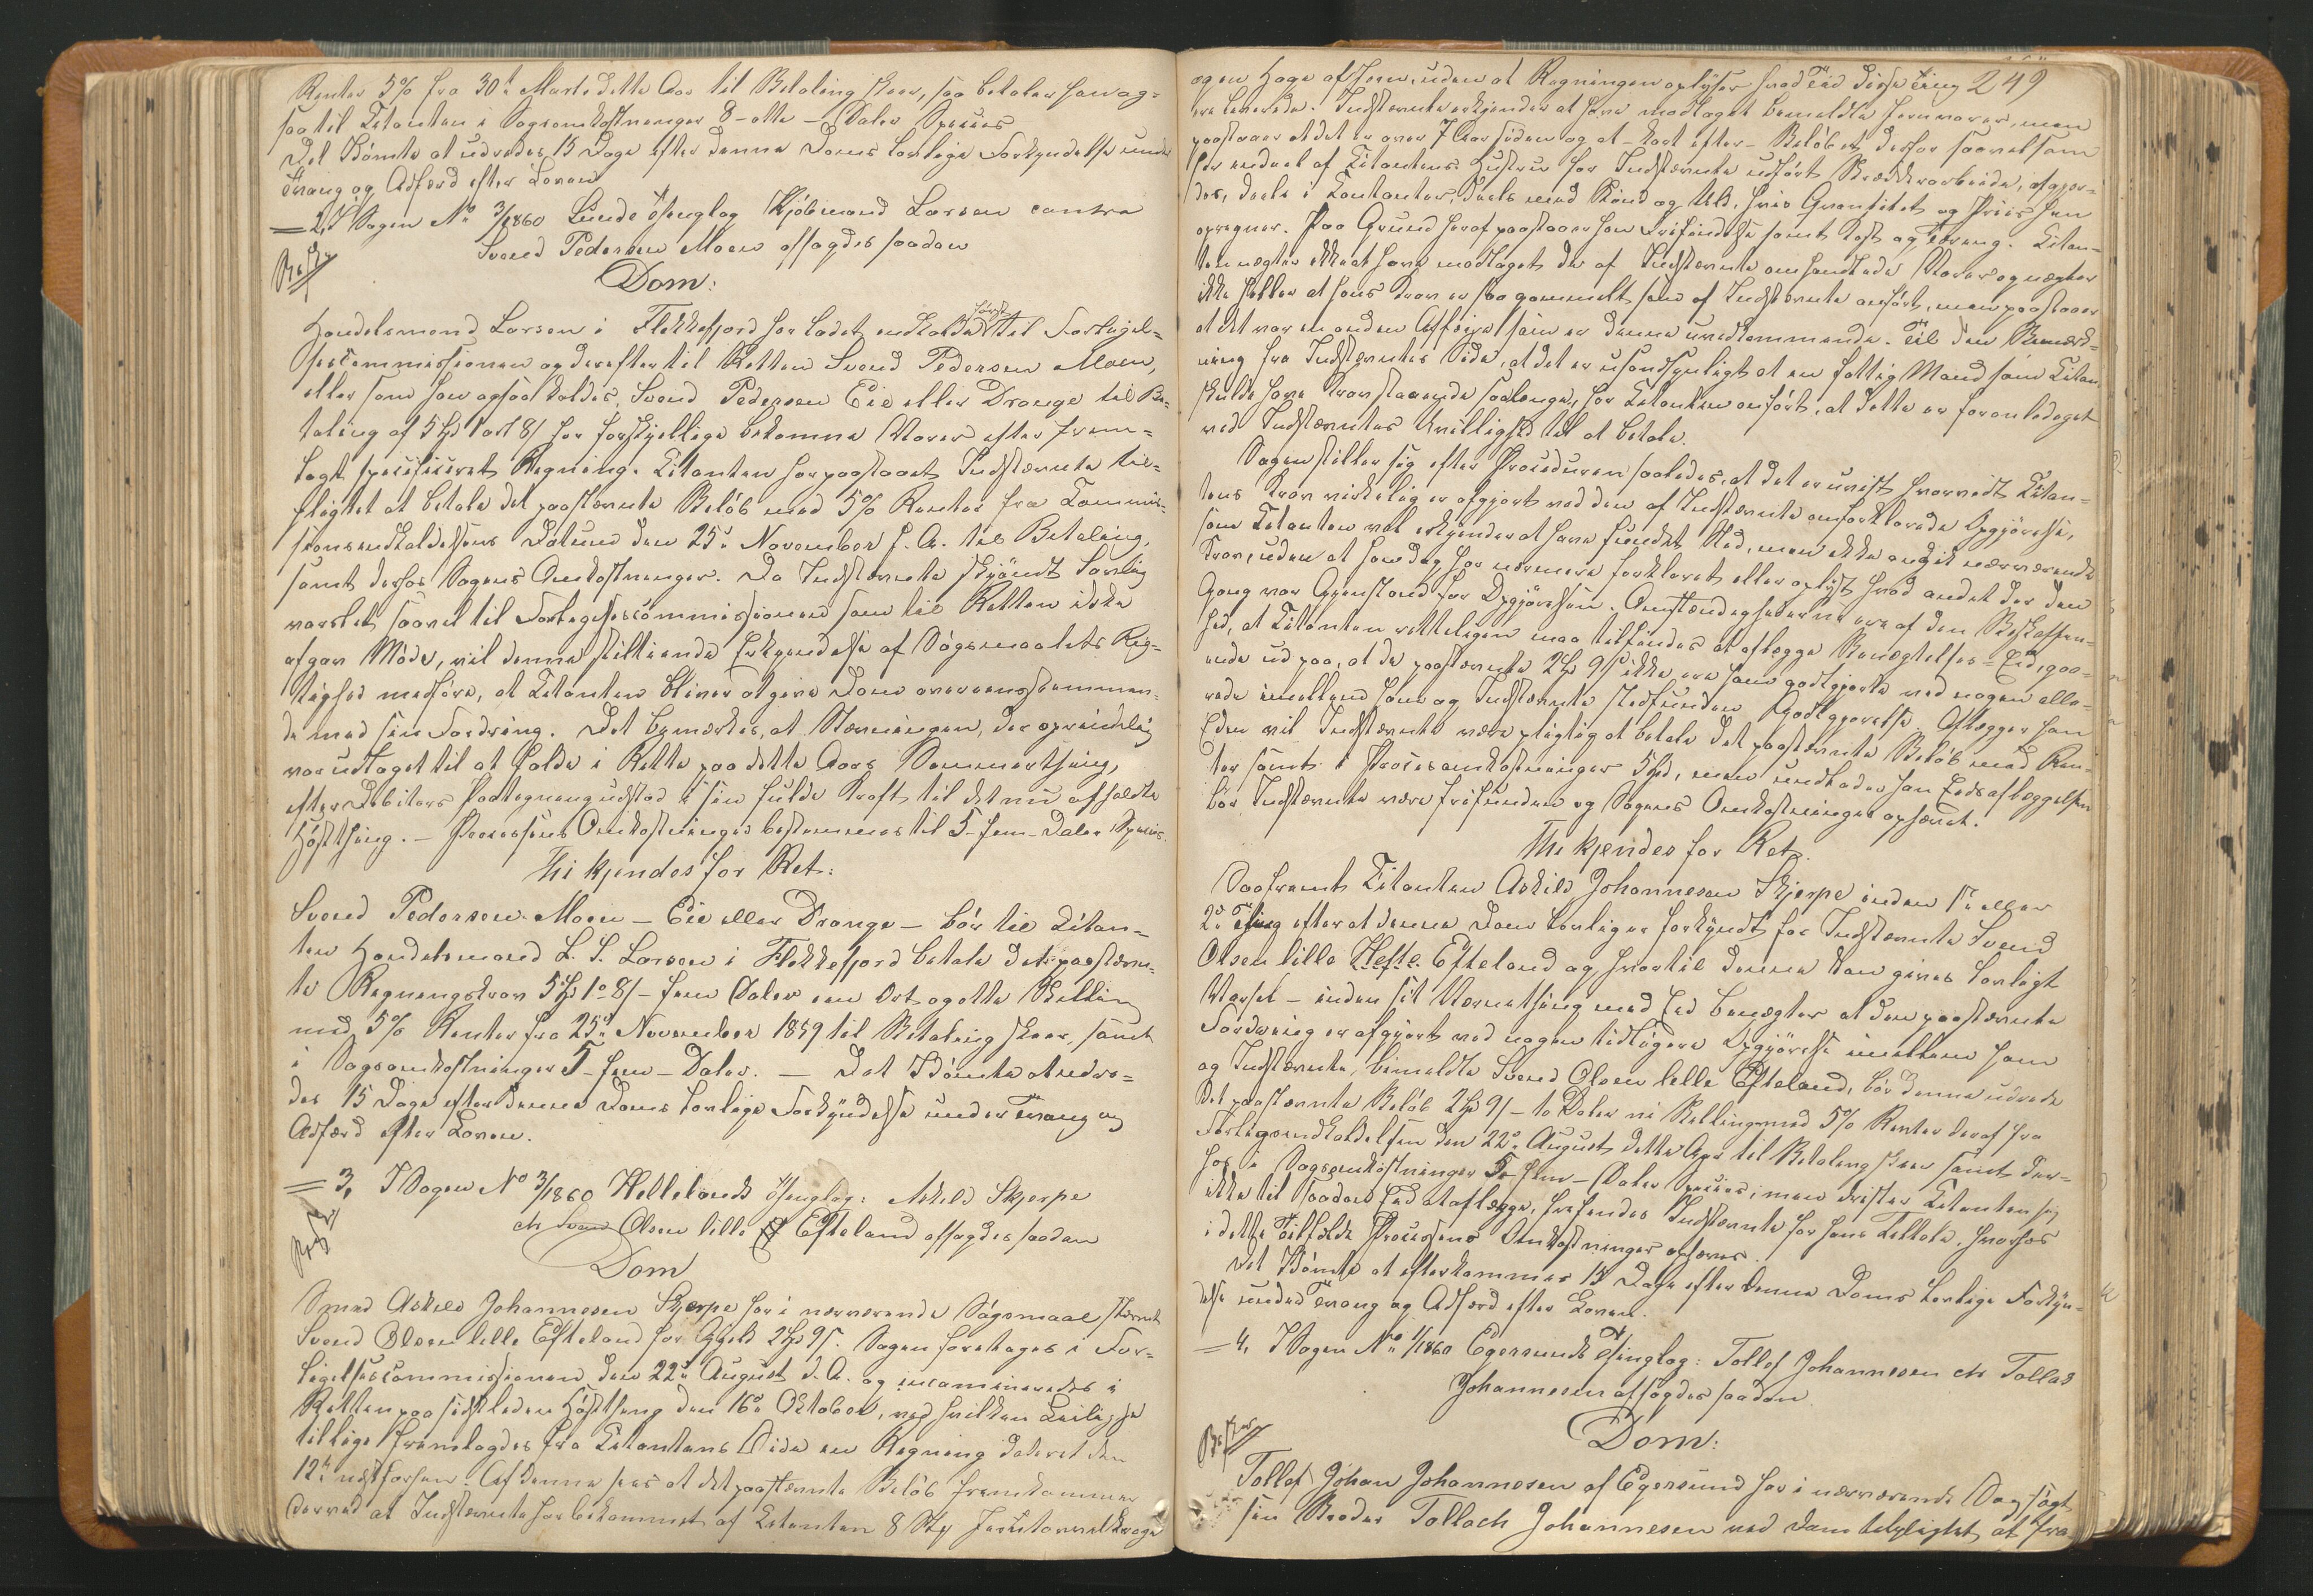 Renter 5% fra 30te Marts dette Aar til Betaling skeer, saa betaler han og-
saa til Citanten i Sagsomkostninger 8 - otte - Daler Species
Det Idømte at udredes 15 Dage efter denne Doms lovlige Forkyndelse under
Tvang og Adfærd efter Loven
= 2, I Sagen No 3/1860 Lunde Thinglag Kjøbmand Larsen contra
Svend Pedersen Moen afsagdes saadan
Dom:
Handelsmand Larsen i Flekkefjord har ladet indkalde først til Forligel-
sescommissionen og derefter til Retten Svend Pedersen Moen,
eller som han ogsaa kaldes, Svend Pedersen Eie eller Drange til Be-
taling af 5 Spd 1 ort 8 s for forskjellige bekomne Varer efter frem-
lagt specificeret Regning. Citanten har paastaaet Indstævnte til-
pligtet at betale det paastævnte Beløb med 5% Renter fra Commis-
sionsindkaldelsens Datum den 25de November f. A. til Betaling,
samt derhos Sagens Omkostninger. Da Indstævnte skjøndt lovlig
varslet saavel til Forligelsescommissionen som til Retten ikke
afgav Møde, vil denne stiltiende Erkjendelse af Søgsmaalets Rig-
tighed medføre, at Citanten bliver at give Dom overensstemmen-
de med sin Fordring. Det bemærkes, at Stævningen, der oprindelig
var udtaget til at falde i Rette paa dette Aars Sommerthing,
efter Debitors Paategning udstod i sin fulde Kraft til det nu afholdte
Høstthing. - Processens Omkostninger bestemmes til 5 - fem - Daler Species.
Thi kjendes for Ret:
Svend Pedersen Moen - Eie eller Drange - bør til Citan-
ten Handelsmand L. S. Larsen i Flekkefjord betale det paastævn-
te Regningskrav 5 Spd 1 o 8 s - fem Daler een Ort og otte Skilling
med 5% Renter fra 25de November 1859 til Betaling skeer, samt
i Sagsomkostninger 5 - fem - Daler. - Det Idømte at udre-
des 15 Dage efter denne Doms lovlige Forkyndelse under Tvang og
Adfærd efter Loven.
= 3, I Sagen No 3/1860 Hellelands Thinglag: Askild Skjerpe
ctr Svend Olsen lille Efteland afsagdes saadan
Dom
Smed Askild Johannesen Skjerpe har i nærværende Søgsmaal stævnet
Svend Olsen lille Efteland for Gjeld 2 Spd 9 s. Sagen foretoges i For-
ligelsescommissionen den 22de August d. A. og incamineredes i
Retten paa sidstleden Høstthing den 16de Oktober, ved hvilken Leilighed
tillige fremlagdes fra Citantens Side en Regning dateret den
12te næstforhen. Af denne sees at det paastævnte Beløb fremkommer
derved at Indstævnte har bekommet af Citanten 8 Stk
og en Hage af Jern, uden at Regningen oplyser hvad Tid disse Ting 249
ere leverede. Indstævnte erkjender at have modtaget bemeldte Jernvarer, men
paastaaer at det er over 7 Aar siden og at - kort efter - Beløbet derfor saavelsom
for endeel af Citantens Hustru for Indstævnte udført Skrædderarbeide, afgjor-
des, deels i Contanter, deels med Skind og Uld, hvis Qvantitet og Priis han
opregner. Paa Grund heraf paastaaer han Frifindelse samt Kost og Tæring. Citan-
ten nægter ikke at have modtaget de af Indstævnte omhandlede Varer og nægter
ikke heller at hans Krav er saa gammelt som af Indstævnte anført, men paastaaer
at det var en anden Affaire som er denne uvedkommende. Til den Bemærk-
ning fra Indstævntes Side, at det er usandsynligt at en fattig Mand som Citan.
skulde have Krav staaende saalenge, har Citanten anført, at dette er foranlediget
ved Indstævntes Uvillighed til at betale.
Sagen stiller sig efter Proceduren saaledes, at det er uvist hvorvidt Citan-
tens Krav virkelig er afgjort ved den af Indstævnte omforklarede Opgjørelse,
som Citanten vel erkjender at have fundet Sted, men ikke angik nærværende
Krav, uden at han dog har nærmere forklaret eller oplyst hvad andet der den
Gang var Gjenstand for Opgjørelsen. Omstændighederne ere af den Beskaffen-
hed, at Citanten retteligen maa tilfindes at aflægge Benægtelses-Eed, gaa-
ende ud paa, at de paastævnte 2 Spd 9 s ikke ere ham godtgjorte ved nogen alle-
rede imellem ham og Indstævnte stedfunden Godtgjørelse. Aflægger han
Eden vil Indstævnte være pligtig at betale det paastævnte Beløb med Ren-
ter samt i Procesomkostninger 5 Spd, men undlader han Eedsaflæggelsen
bør Indstævnte være frifunden og Sagens Omkostninger ophævet.
Thi kjendes for Ret:
Saafremt Citanten Askild Johannesen Skjerpe inden 1ste eller
2det Thing efter at denne Dom lovlig er forkyndt for Indstævnte Svend
Olsen lille Hefte Efteland og hvortil denne kan gives lovligt
Varsel - inden sit Værnething med Eed benægter at den paastævnte
Fordring er afgjort ved nogen tidligere Opgjørelse imellem ham
og Indstævnte, bemeldte Svend Olsen lille Efteland, bør denne udrede
det paastævnte Beløb 2 Spd 9 s - to Daler ni Skilling med 5% Renter deraf fra
Forligsindkaldelsen den 22de August dette Aar til Betaling skeer samt der-
hos i Sagsomkostninger 5 - fem - Daler Species; men drister Citanten sig
ikke til saadan Eed at aflægge, frifindes Indstævnte for hans Tiltale, hvorhos
i dette Tilfælde Processens Omkostninger ophæves.
Det Idømte at efterkommes 15 Dage efter denne Doms lovlige Forkyn-
delse under Tvang og Adfærd efter Loven.
= 4, I Sagen No 1/1860 Egersunds Thinglag: Tollef Johannesen ctr Tollak
Johannesen afsagdes saadan
Dom:
Tollef Johan Johannesen af Egersund har i nærværende Sag søgt
sin Broder Tollach Johannesen ved Dom tilpligtet at fra-